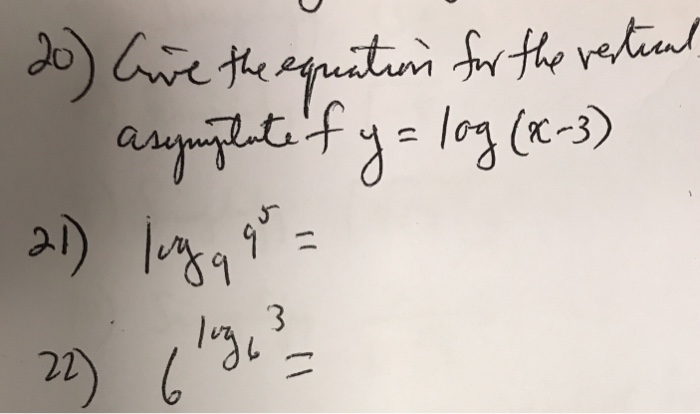 20) Give the equation for the vertical
asymptote of y = log (x-3)
21) log₉ 9⁵ =
22) 6^log₆ 3 =